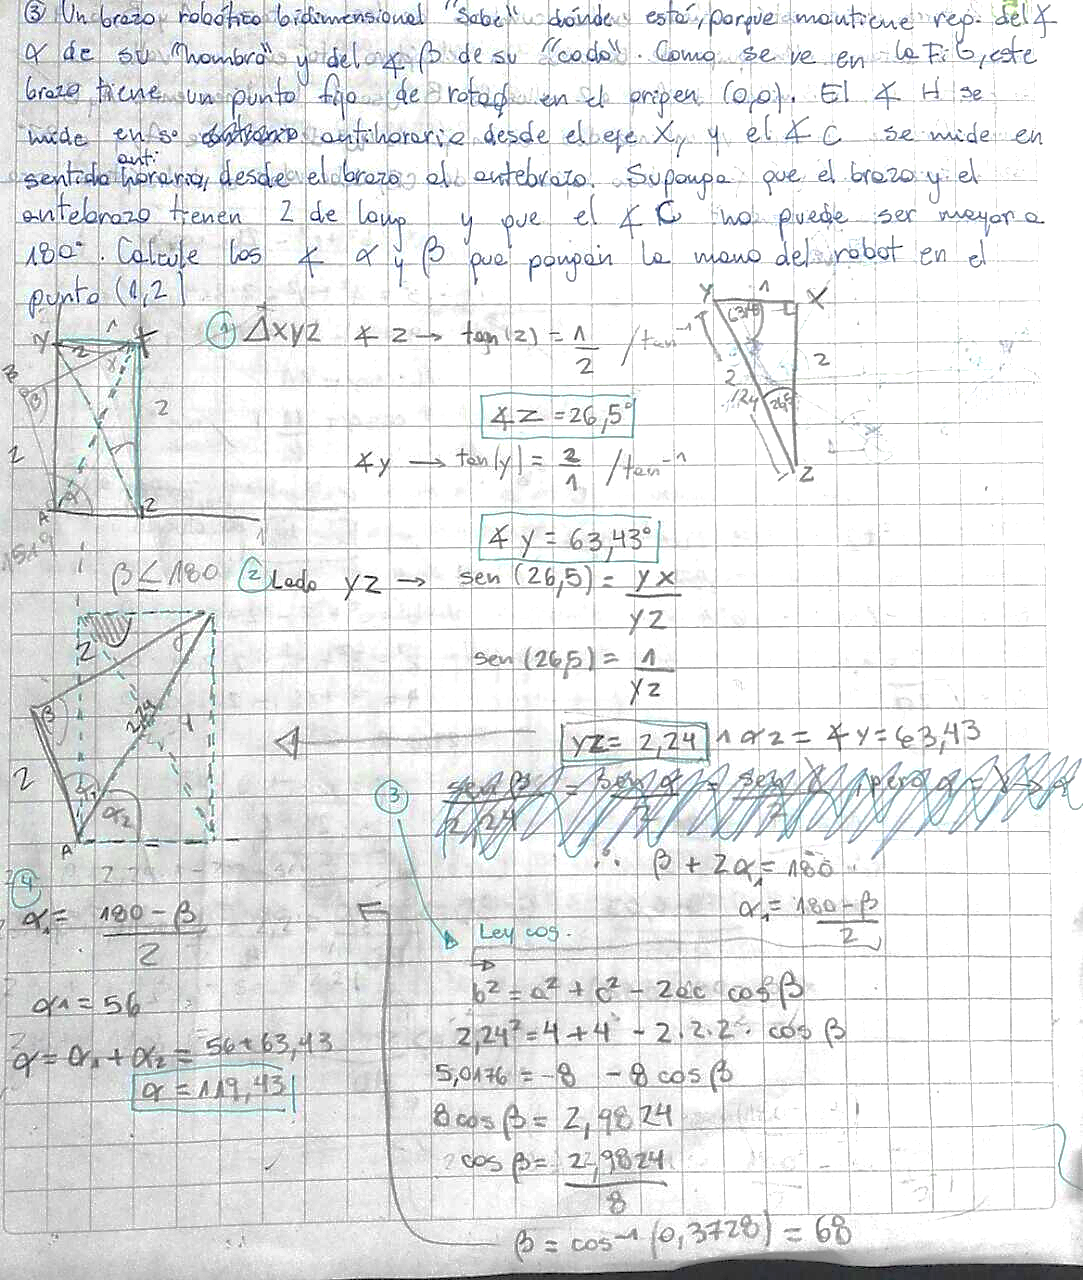 ③ Un brazo robótico bidimensional "sabe" dónde está, porque mantiene reg. del ∡
α de su "hombro" y del ∡ β de su "codo". Como se ve en la FiG, este
brazo tiene un punto fijo de rotac en el origen (0,0). El ∡ H se
mide en s° antihorario desde el eje X, y el ∡ C se mide en
sentido antihorario, desde el brazo al antebrazo. Suponga que el brazo y el
antebrazo tienen 2 de long y que el ∡ C no puede ser mayor a
180°. Calcule los ∡ α y β que pongan la mano del robot en el
punto (1,2)
① Δxyz ∡ z → tan(z) = 1/2 / tan⁻¹
∡ z = 26,5°
∡y → tan(y) = 2/1 / tan⁻¹
∡ y = 63,43°
Y 1 X
63,43
2
2,24
26,5
2
Z
Y 1 X
2
γ
B
β
2
2
A
α
Z
1
β ≤ 180
② Lado YZ → sen (26,5) = yx/yz
sen (26,5) = 1/yz
yz = 2,24 ∧ α2 = ∡y = 63,43
2
γ
β
2,24
2
α1
α2
A
③
∴ β + 2α₁ = 180
α₁ = 180 - β / 2
Ley cos.
b² = a² + c² - 2ac cos β
2,24² = 4 + 4 - 2·2·2· cos β
5,0176 = -8 - 8 cos β
8 cos β = 2,9824
cos β = 2,9824/8
β = cos⁻¹ (0,3728) = 68
④
α₁ = 180 - β / 2
α1 = 56
α = α₁ + α₂ = 56 + 63,43
α = 119,43